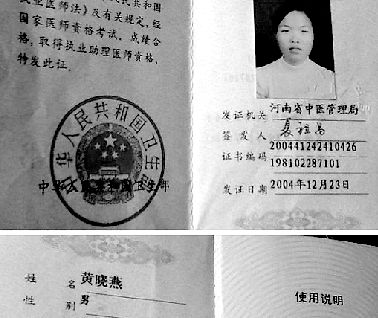 民共和国
执业医师法》及有关规定，经
国家医师资格考试，成绩合
格，取得执业助理医师资格，
特发此证。
中华人民共和国卫生部
中华人民共和国卫生部
发证机关 河南省中医管理局
签发人
200441242410426
证书编码 198102287101
发证日期 2004年12月23日
姓名 黄晓燕
性别 男
使用说明